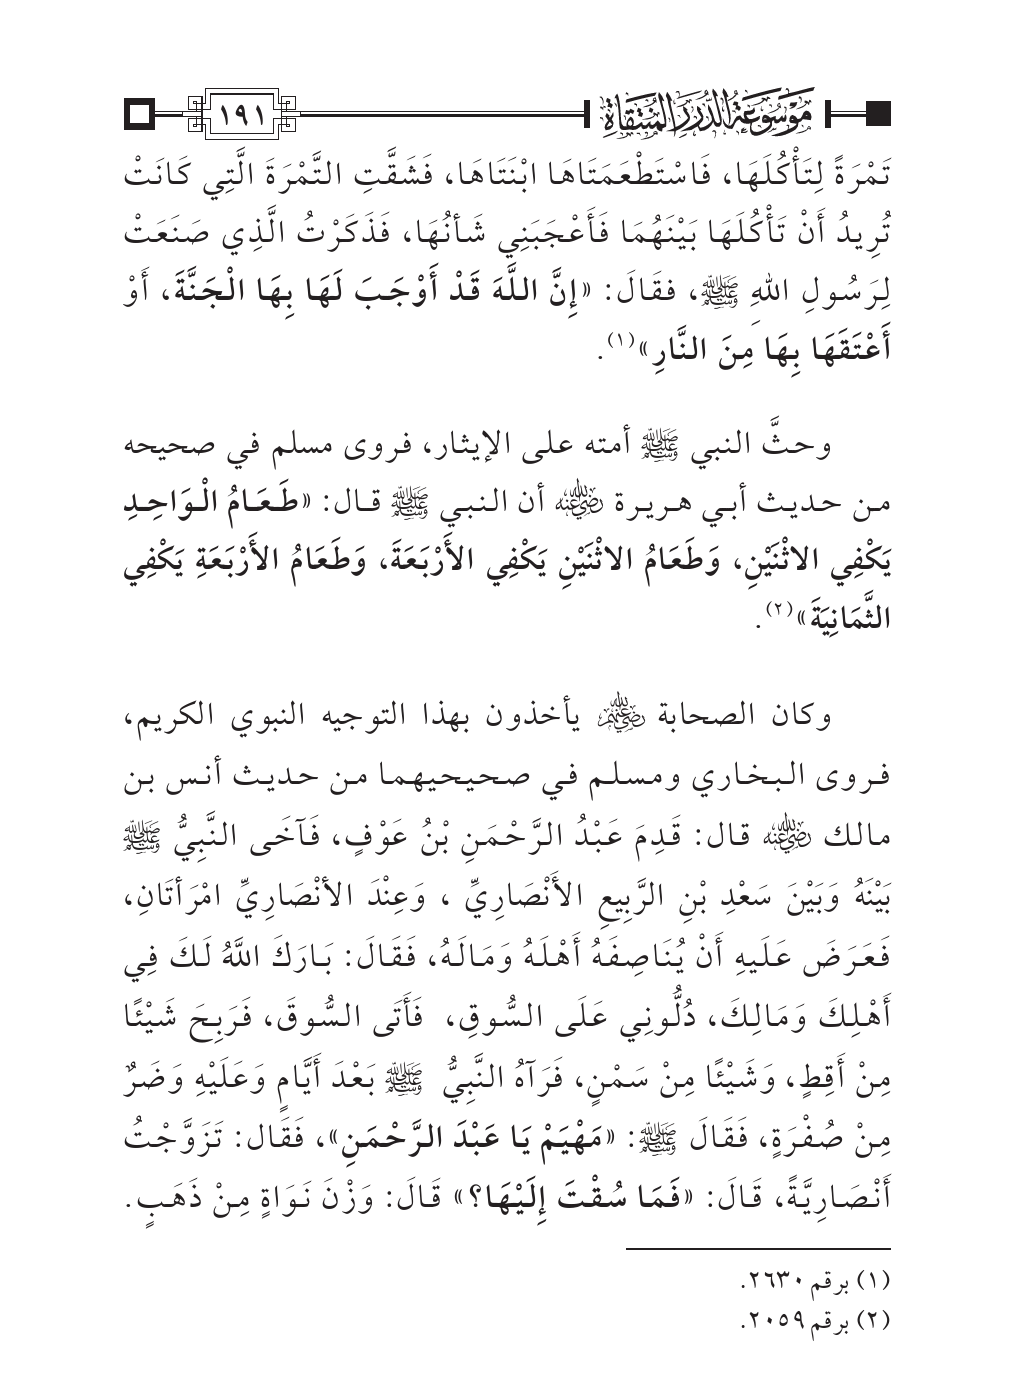 موسوعة الدرر المنتقاة
١٩١
تَمْرَةً لِتَأْكُلَهَا، فَاسْتَطْعَمَتَاهَا ابْنَتَاهَا، فَشَقَّتِ التَّمْرَةَ الَّتِي كَانَتْ
تُرِيدُ أَنْ تَأْكُلَهَا بَيْنَهُمَا فَأَعْجَبَنِي شَأنُهَا، فَذَكَرْتُ الَّذِي صَنَعَتْ
لِرَسُولِ اللهِ ﷺ، فقَالَ: «إِنَّ اللَّهَ قَدْ أَوْجَبَ لَهَا بِهَا الْجَنَّةَ، أَوْ
أَعْتَقَهَا بِهَا مِنَ النَّارِ»(١).
وحثَّ النبي ﷺ أمته على الإيثار، فروى مسلم في صحيحه
من حديث أبي هريرة رضي الله عنه أن النبي ﷺ قال: «طَعَامُ الْوَاحِدِ
يَكْفِي الاثْنَيْنِ، وَطَعَامُ الاثْنَيْنِ يَكْفِي الأَرْبَعَةَ، وَطَعَامُ الأَرْبَعَةِ يَكْفِي
الثَّمَانِيَةَ»(٢).
وكان الصحابة رضي الله عنهم يأخذون بهذا التوجيه النبوي الكريم،
فروى البخاري ومسلم في صحيحيهما من حديث أنس بن
مالك رضي الله عنه قال: قَدِمَ عَبْدُ الرَّحْمَنِ بْنُ عَوْفٍ، فَآخَى النَّبِيُّ ﷺ
بَيْنَهُ وَبَيْنَ سَعْدِ بْنِ الرَّبِيعِ الأَنْصَارِيِّ ، وَعِنْدَ الأنْصَارِيِّ امْرَأتَانِ،
فَعَرَضَ عَلَيهِ أَنْ يُنَاصِفَهُ أَهْلَهُ وَمَالَهُ، فَقَالَ: بَارَكَ اللهُ لَكَ فِي
أَهْلِكَ وَمَالِكَ، دُلُّونِي عَلَى السُّوقِ، فَأَتَى السُّوقَ، فَرَبِحَ شَيْئًا
مِنْ أَقِطٍ، وَشَيْئًا مِنْ سَمْنٍ، فَرَآهُ النَّبِيُّ ﷺ بَعْدَ أَيَّامٍ وَعَلَيْهِ وَضَرٌ
مِنْ صُفْرَةٍ، فَقَالَ ﷺ: «مَهْيَمْ يَا عَبْدَ الرَّحْمَنِ»، فَقَال: تَزَوَّجْتُ
أَنْصَارِيَّةً، قَالَ: «فَمَا سُقْتَ إِلَيْهَا؟» قَالَ: وَزْنَ نَوَاةٍ مِنْ ذَهَبٍ.
(١) برقم ٢٦٣٠.
(٢) برقم ٢٠٥٩.